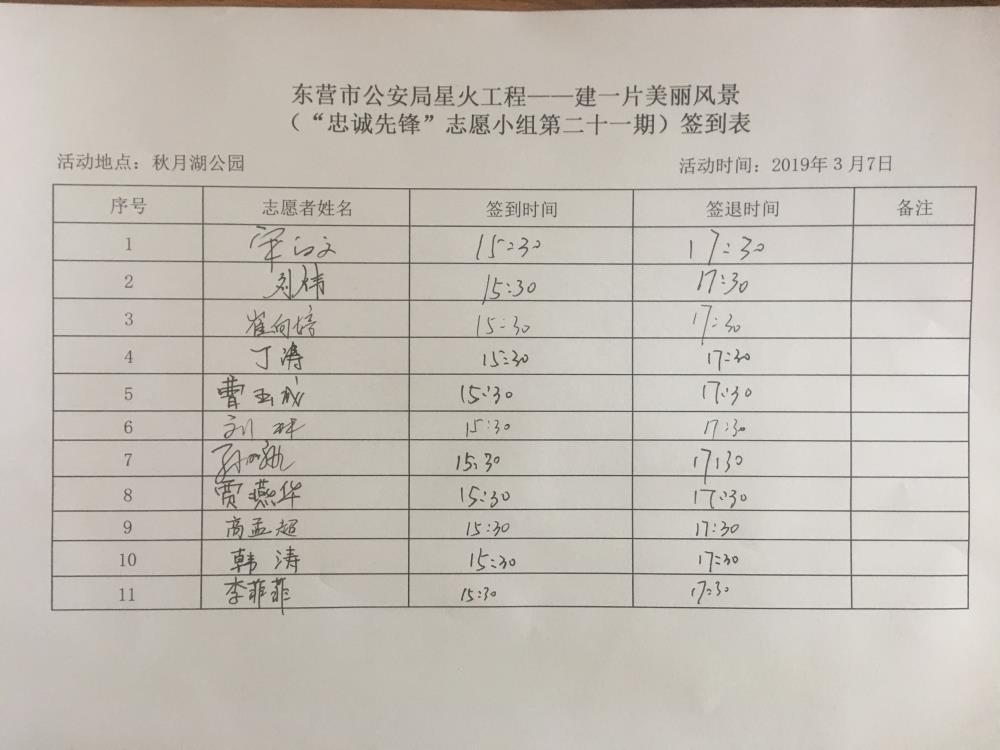 东营市公安局星火工程——建一片美丽风景
（“忠诚先锋”志愿小组第二十一期）签到表
活动地点：秋月湖公园 活动时间：2019年3月7日
序号 志愿者姓名 签到时间 签退时间 备注
1 15:30 17:30
2 刘伟 15:30 17:30
3 崔向培 15:30 17:30
4 丁涛 15:30 17:30
5 曹玉成 15:30 17:30
6 刘 15:30 17:30
7 孙 15:30 17:30
8 贾燕华 15:30 17:30
9 高孟超 15:30 17:30
10 韩涛 15:30 17:30
11 李菲菲 15:30 17:30